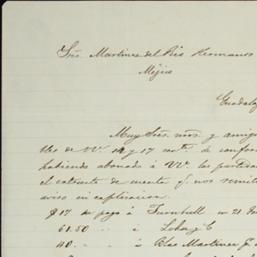 Sres. Martinez del Rio Hermanos
Méjico
Guadala
Muy Sres. mos. y amigos
de VV. 14 y 17 de confor
habiendo abonado á VV. las partidas
el extracto de cuenta q. nos remit
aviso en esplicacion
$17 de pago á Turnbull en 21
61.50 " " á
40 " " á Blas Martinez